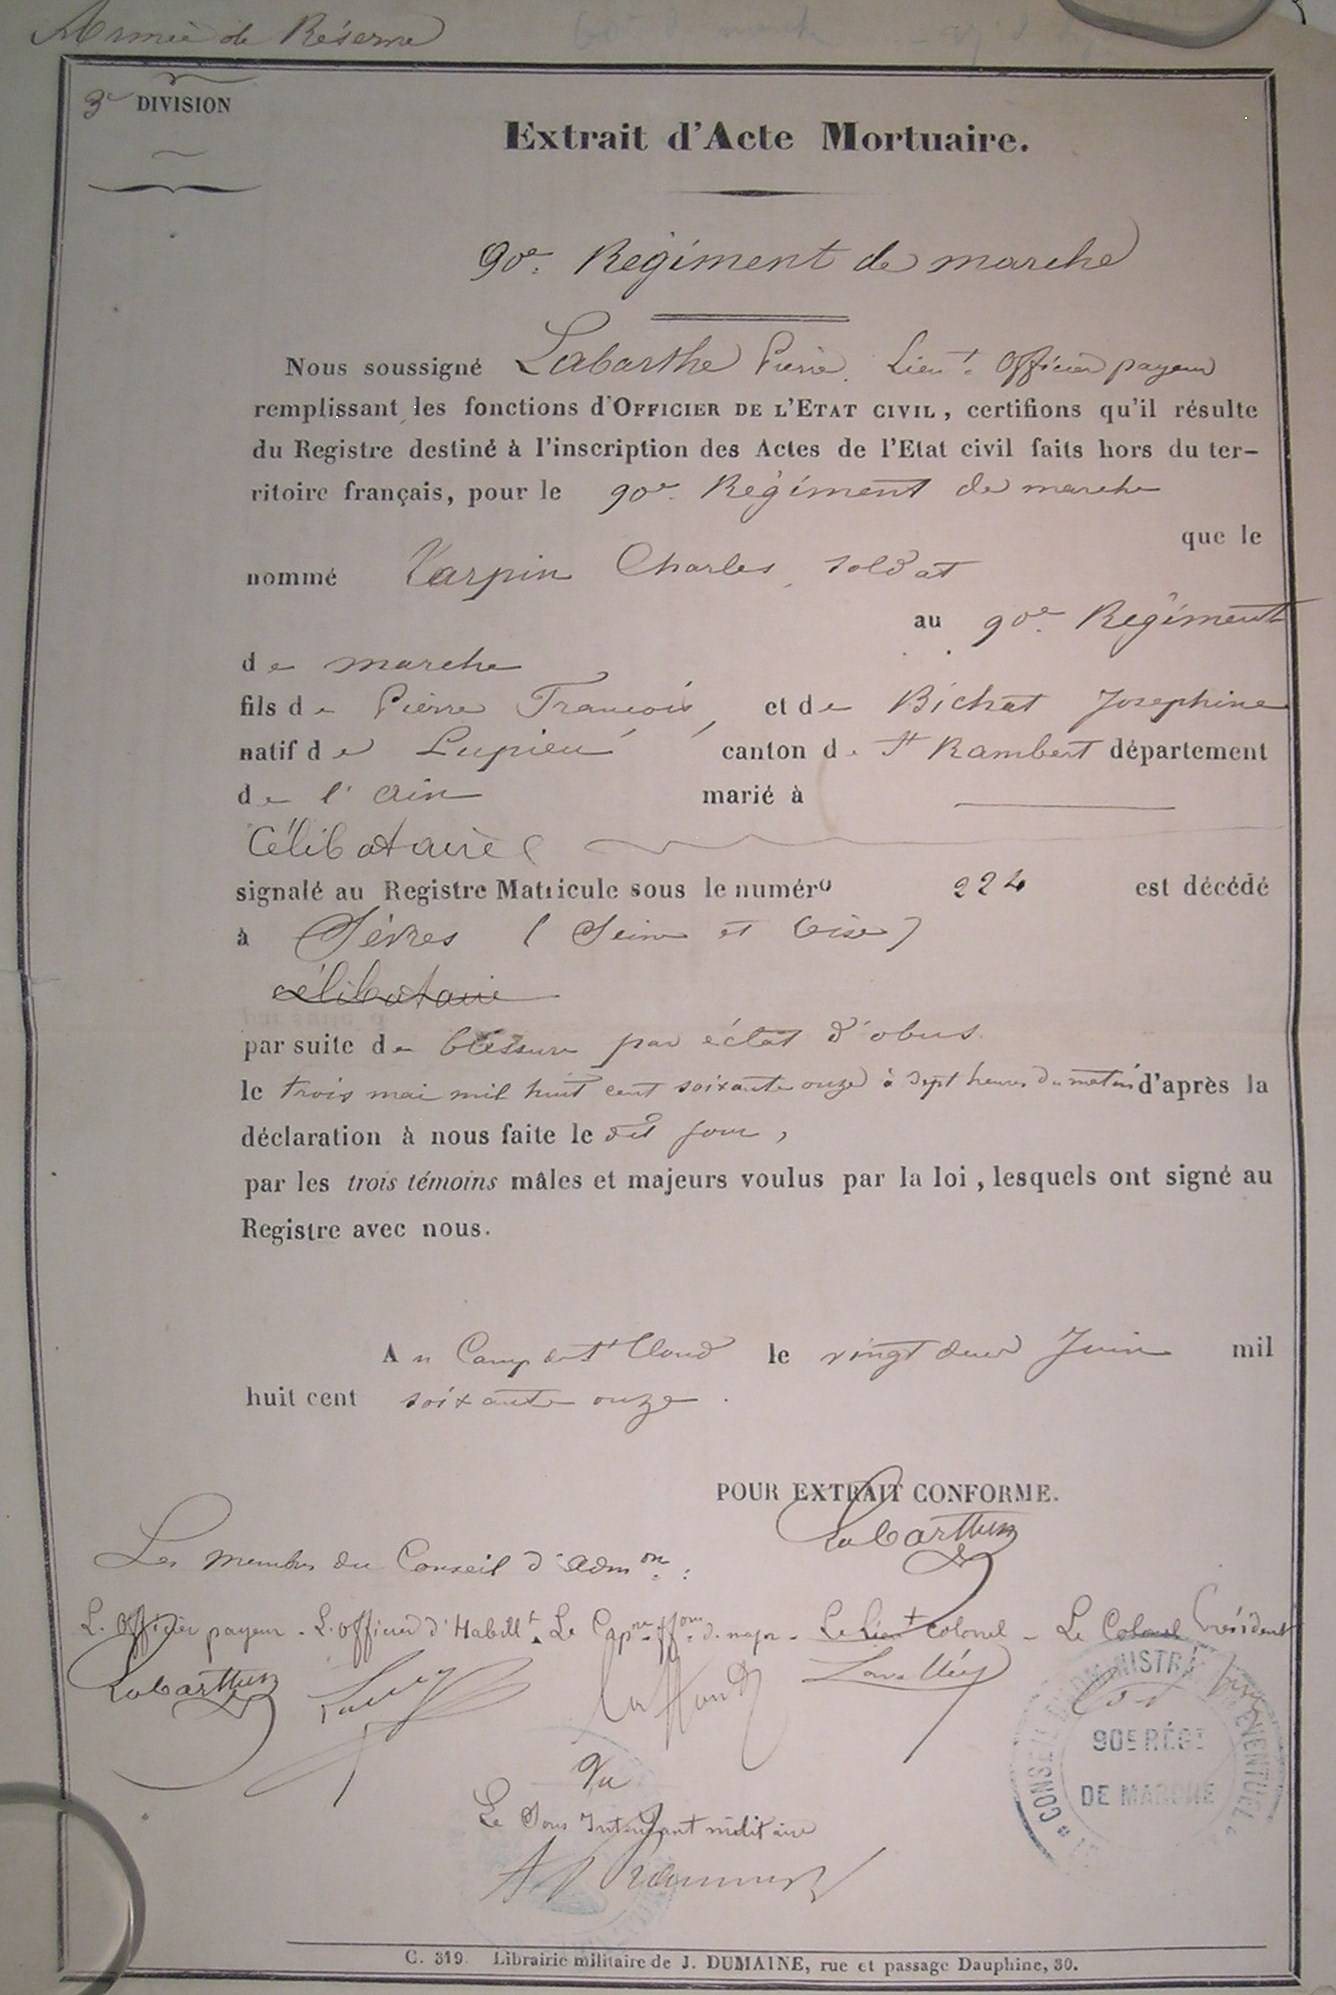 Armée de Réserve
3e DIVISION
Extrait d'Acte Mortuaire.
90e. Régiment de marche
Nous soussigné Labarthe Pierre. Lieut. Officier payeur
remplissant les fonctions d'OFFICIER DE L'ETAT CIVIL, certifions qu'il résulte
du Registre destiné à l'inscription des Actes de l'Etat civil faits hors du ter-
ritoire français, pour le 90e. Régiment de marche
que le
nommé Varpin Charles, soldat
au 90e. Régiment
de marche
fils de Pierre François, et de Bichat Josephine
natif de Lupieu canton de St Rambert département
de l'Ain marié à
Célibataire
signalé au Registre Matricule sous le numéro 224 est décédé
à Sèvres (Seine et Oise)
célibataire
par suite de blessure par éclat d'obus.
le trois mai mil huit cent soixante onze à sept heures du matin d'après la
déclaration à nous faite le dit jour,
par les trois témoins mâles et majeurs voulus par la loi, lesquels ont signé au
Registre avec nous.
Au Camp de St Cloud le vingt deux Juin mil
huit cent soixante onze.
POUR EXTRAIT CONFORME.
Labarthe
Les membres du Conseil d'admon. :
L. Officier payeur - L. officier d'Habillt. Le Capne ffons. d. major - Le Lieut colonel - Le Colonel Président
Labarthe
CONSEIL D'ADMINISTRATION EVENTUEL
90E RÉGT
DE MARCHE
Vu
Le Sous Intendant militaire
C. 319. Librairie militaire de J. DUMAINE, rue et passage Dauphine, 30.